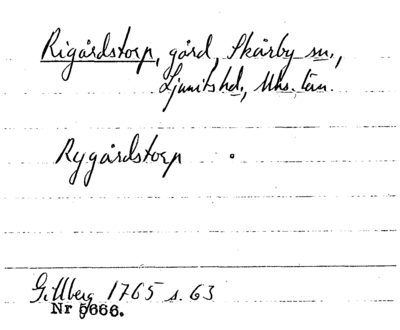 Rigårdstorp, gård, Skårby sn.,
Ljunits hd., Mhs. län.
Rygårdstorp
Gillberg 1765 s. 63
Nr 5666.